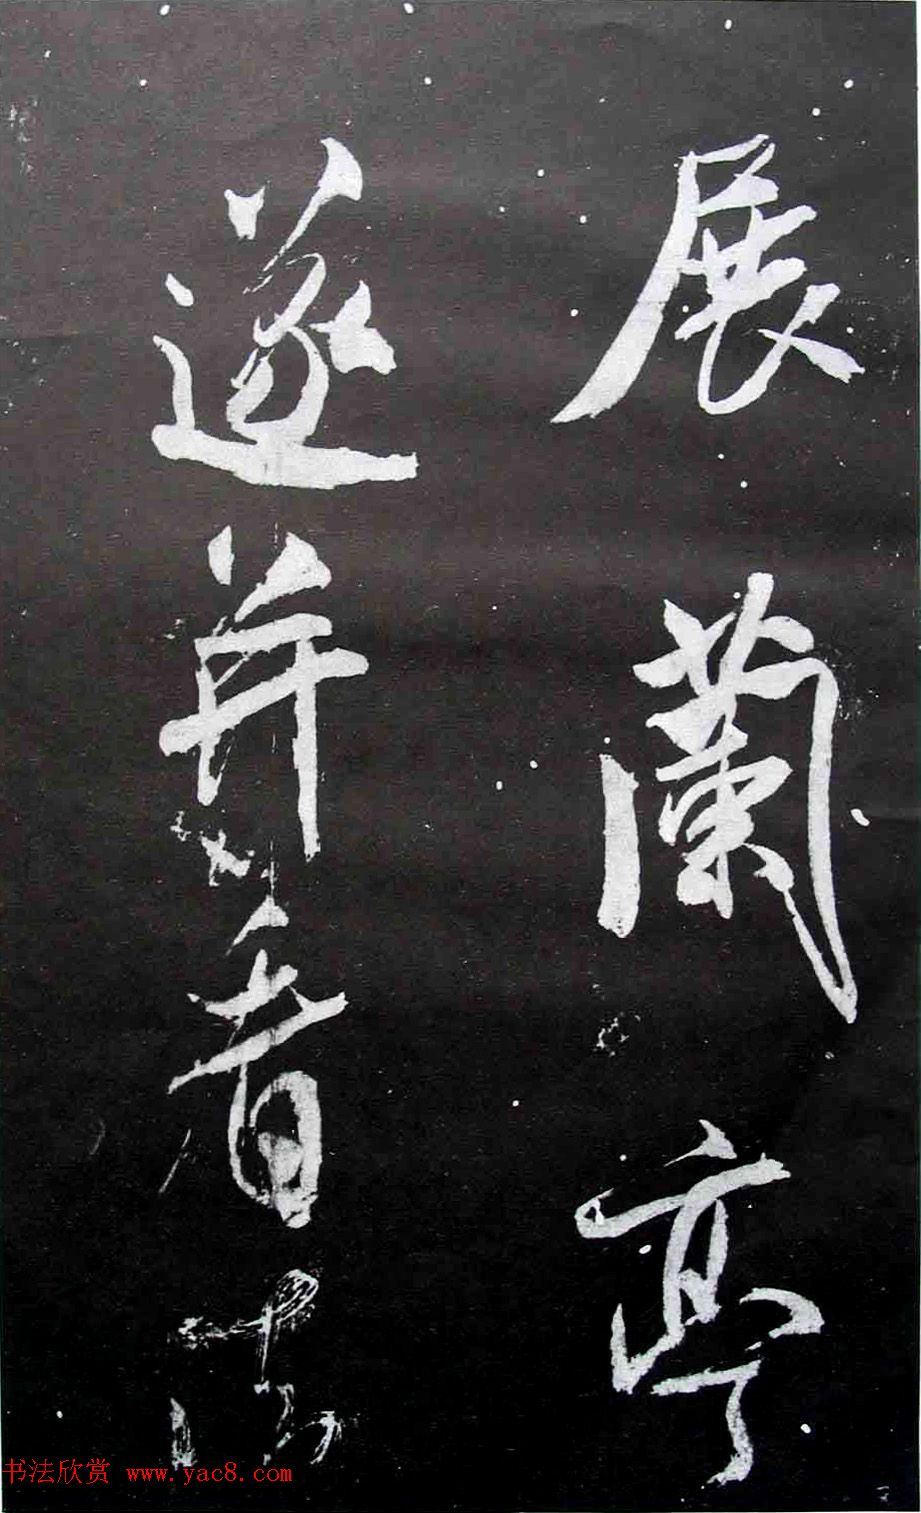 展蘭亭
遂并看
书法欣赏 www.yac8.com